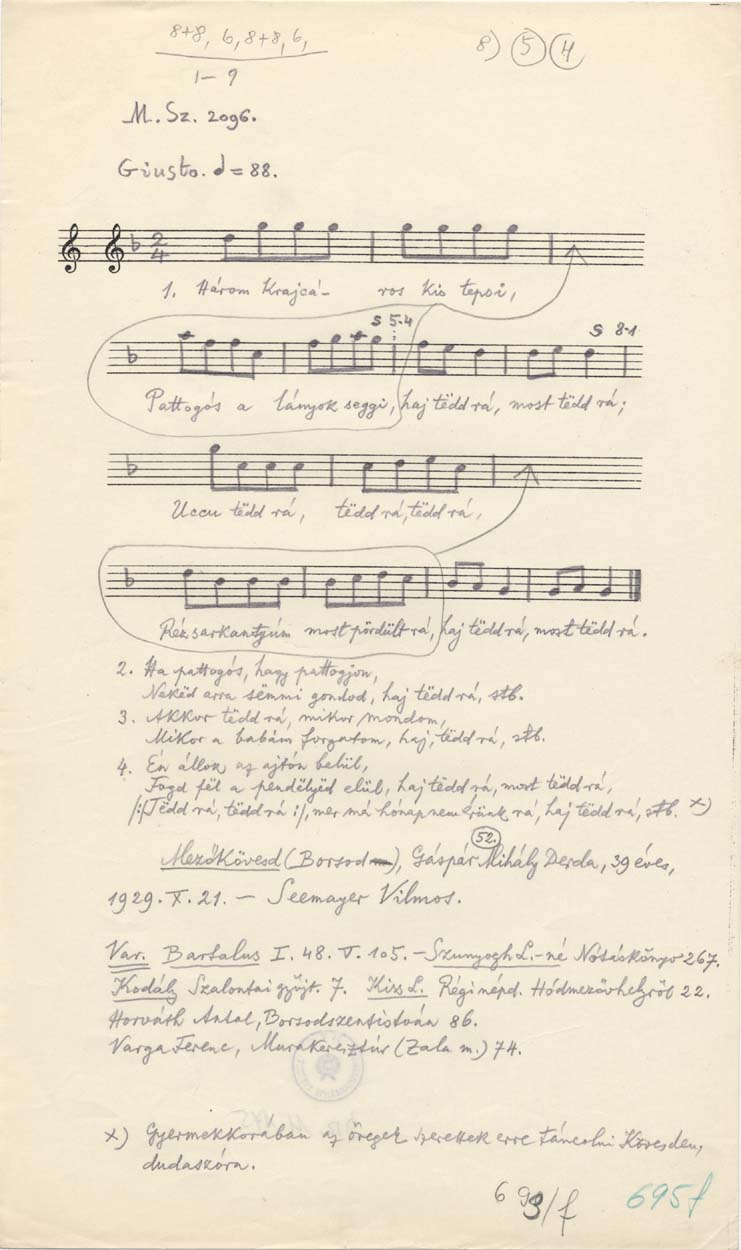 8+8, 6, 8+8, 6,
1— 9
8) 5 4
M. Sz. 2096.
Giusto. = 88.
2
4
1. Három Krajcá- ros Kis tepsi,
S 5·4
S 8·1
Pattogós a lányok seggi, haj tëdd rá, most tëdd rá;
Uccu tëdd rá, tëdd rá, tëdd rá,
Rézsarkantyúm most pördült rá, haj tëdd rá, most tëdd rá.
2. Ha pattogós, hagy pattogjon,
Nekëd arra sëmmi gondod, haj tëdd rá, stb.
3. Akkor tëdd rá, mikor mondom,
Mikor a babám forgatom, haj, tëdd rá, stb.
4. Én állok az ajtón belül,
Fogd fël a pendëlyëd elül, haj tëdd rá, most tëdd rá,
/:Tëdd rá, tëdd rá :/, mer má hónap nem érünk rá, haj tëdd rá, stb. x)
52.
Mezőkövesd (Borsod), Gáspár Mihály Derda, 39 éves,
1929. X. 21. — Seemayer Vilmos.
Var. Bartalus I. 48. V. 105. — Szunyogh L.-né Nótáskönyv 267.
Kodály Szalontai gyűjt. 7. Kiss L. Régi népd. Hódmezővhelyről 22.
Horváth Antal, Borsodszentistván 86.
Varga Ferenc, Murakeresztúr (Zala m.) 74.
x) Gyermekkorában az öregek szerettek erre táncolni Kövesden,
dudaszóra.
695f